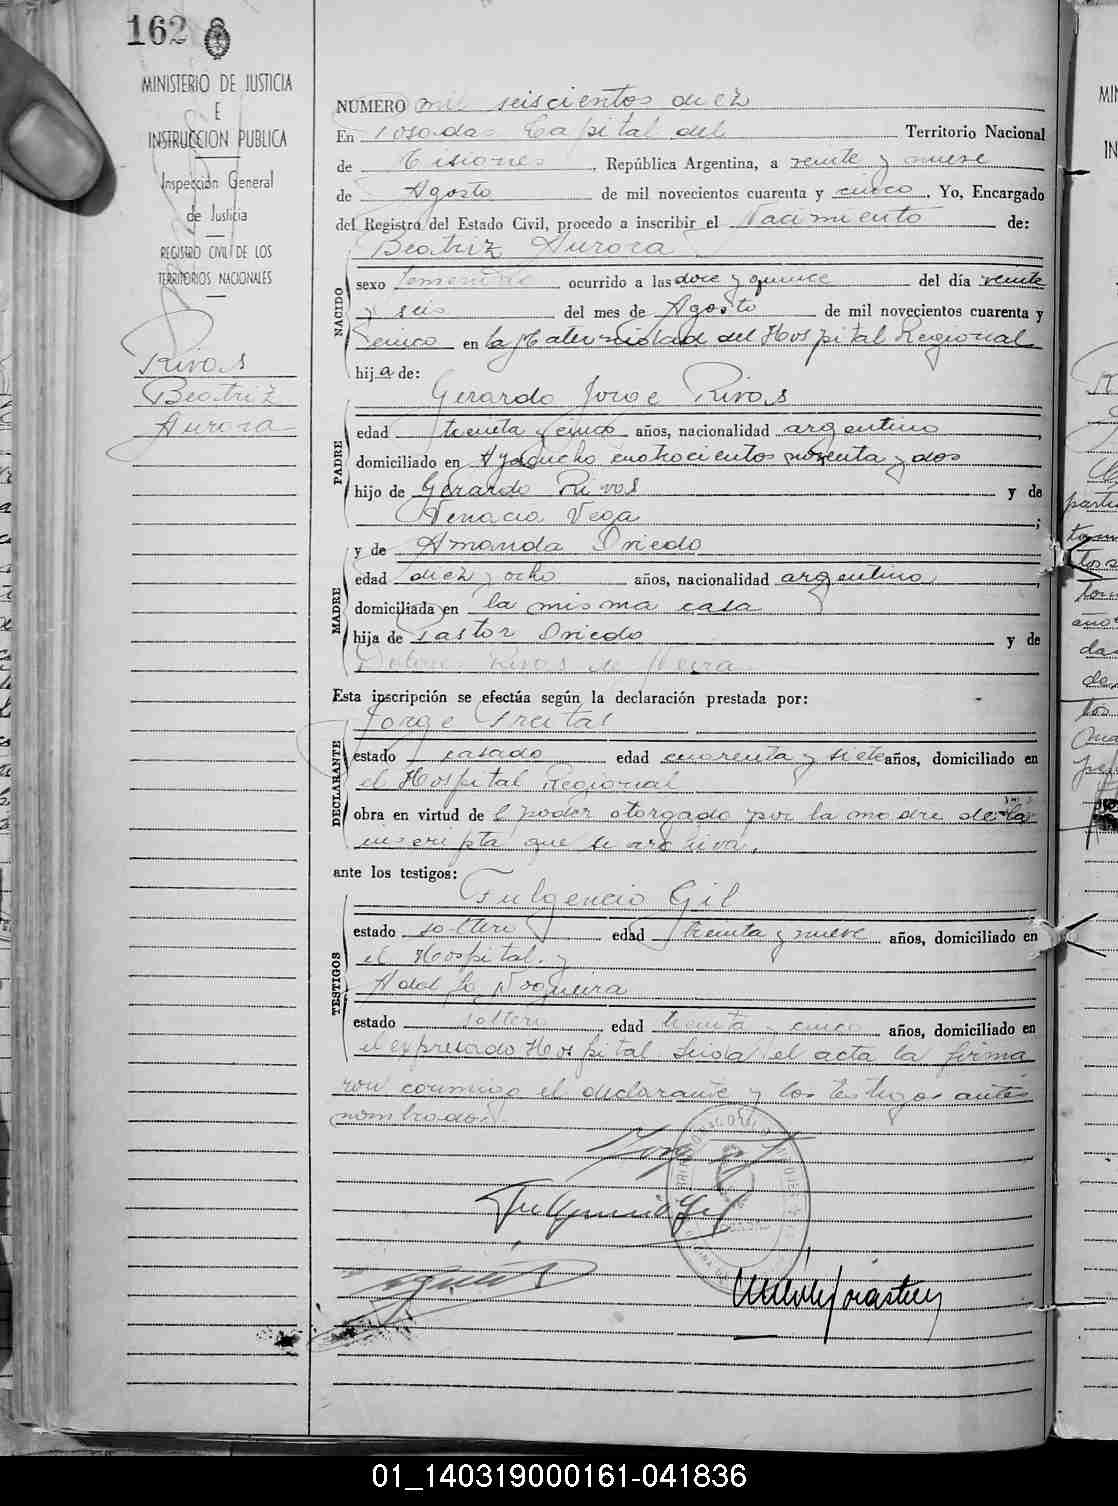 162
MINISTERIO DE JUSTICIA
E
INSTRUCCION PUBLICA
Inspección General
de Justicia
REGISTRO CIVIL DE LOS
TERRITORIOS NACIONALES
Rivas
Beatriz
Aurora
NUMERO mil seiscientos diez
En Posadas Capital del Territorio Nacional
de Misiones, República Argentina, a veinte y nueve
de Agosto de mil novecientos cuarenta y cinco. Yo, Encargado
del Registro del Estado Civil, procedo a inscribir el Nacimiento de:
NACIDO
Beatriz Aurora
sexo femenino ocurrido a las doce y quince del día veinte
y seis del mes de Agosto de mil novecientos cuarenta y
cinco en la Maternidad del Hospital Regional
hija de:
PADRE
Gerardo Jorge Rivas
edad treinta y cinco años, nacionalidad argentino,
domiciliado en Ayacucho cuatrocientos noventa y dos
hijo de Gerardo Rivas y de
Vega;
MADRE
y de Amanda Oviedo
edad diez y ocho años, nacionalidad argentina,
domiciliada en la misma casa
hija de Pastor Oviedo y de
Rivas de
Esta inscripción se efectúa según la declaración prestada por:
DECLARANTE
Jorge Freitas
estado casado edad cuarenta y siete años, domiciliado en
el Hospital Regional
obra en virtud de el poder otorgado por la madre de la
inscripta que se archiva.
ante los testigos:
TESTIGOS
Fulgencio Gil
estado soltero edad treinta y nueve años, domiciliado en
el Hospital. y
Adolfo Nogueira
estado soltero, edad treinta y cinco años, domiciliado en
el expresado Hospital Leida el acta la firma
ron conmigo el declarante y los testigos antes
nombrados.
Fulgencio Gil
01_140319000161-041836